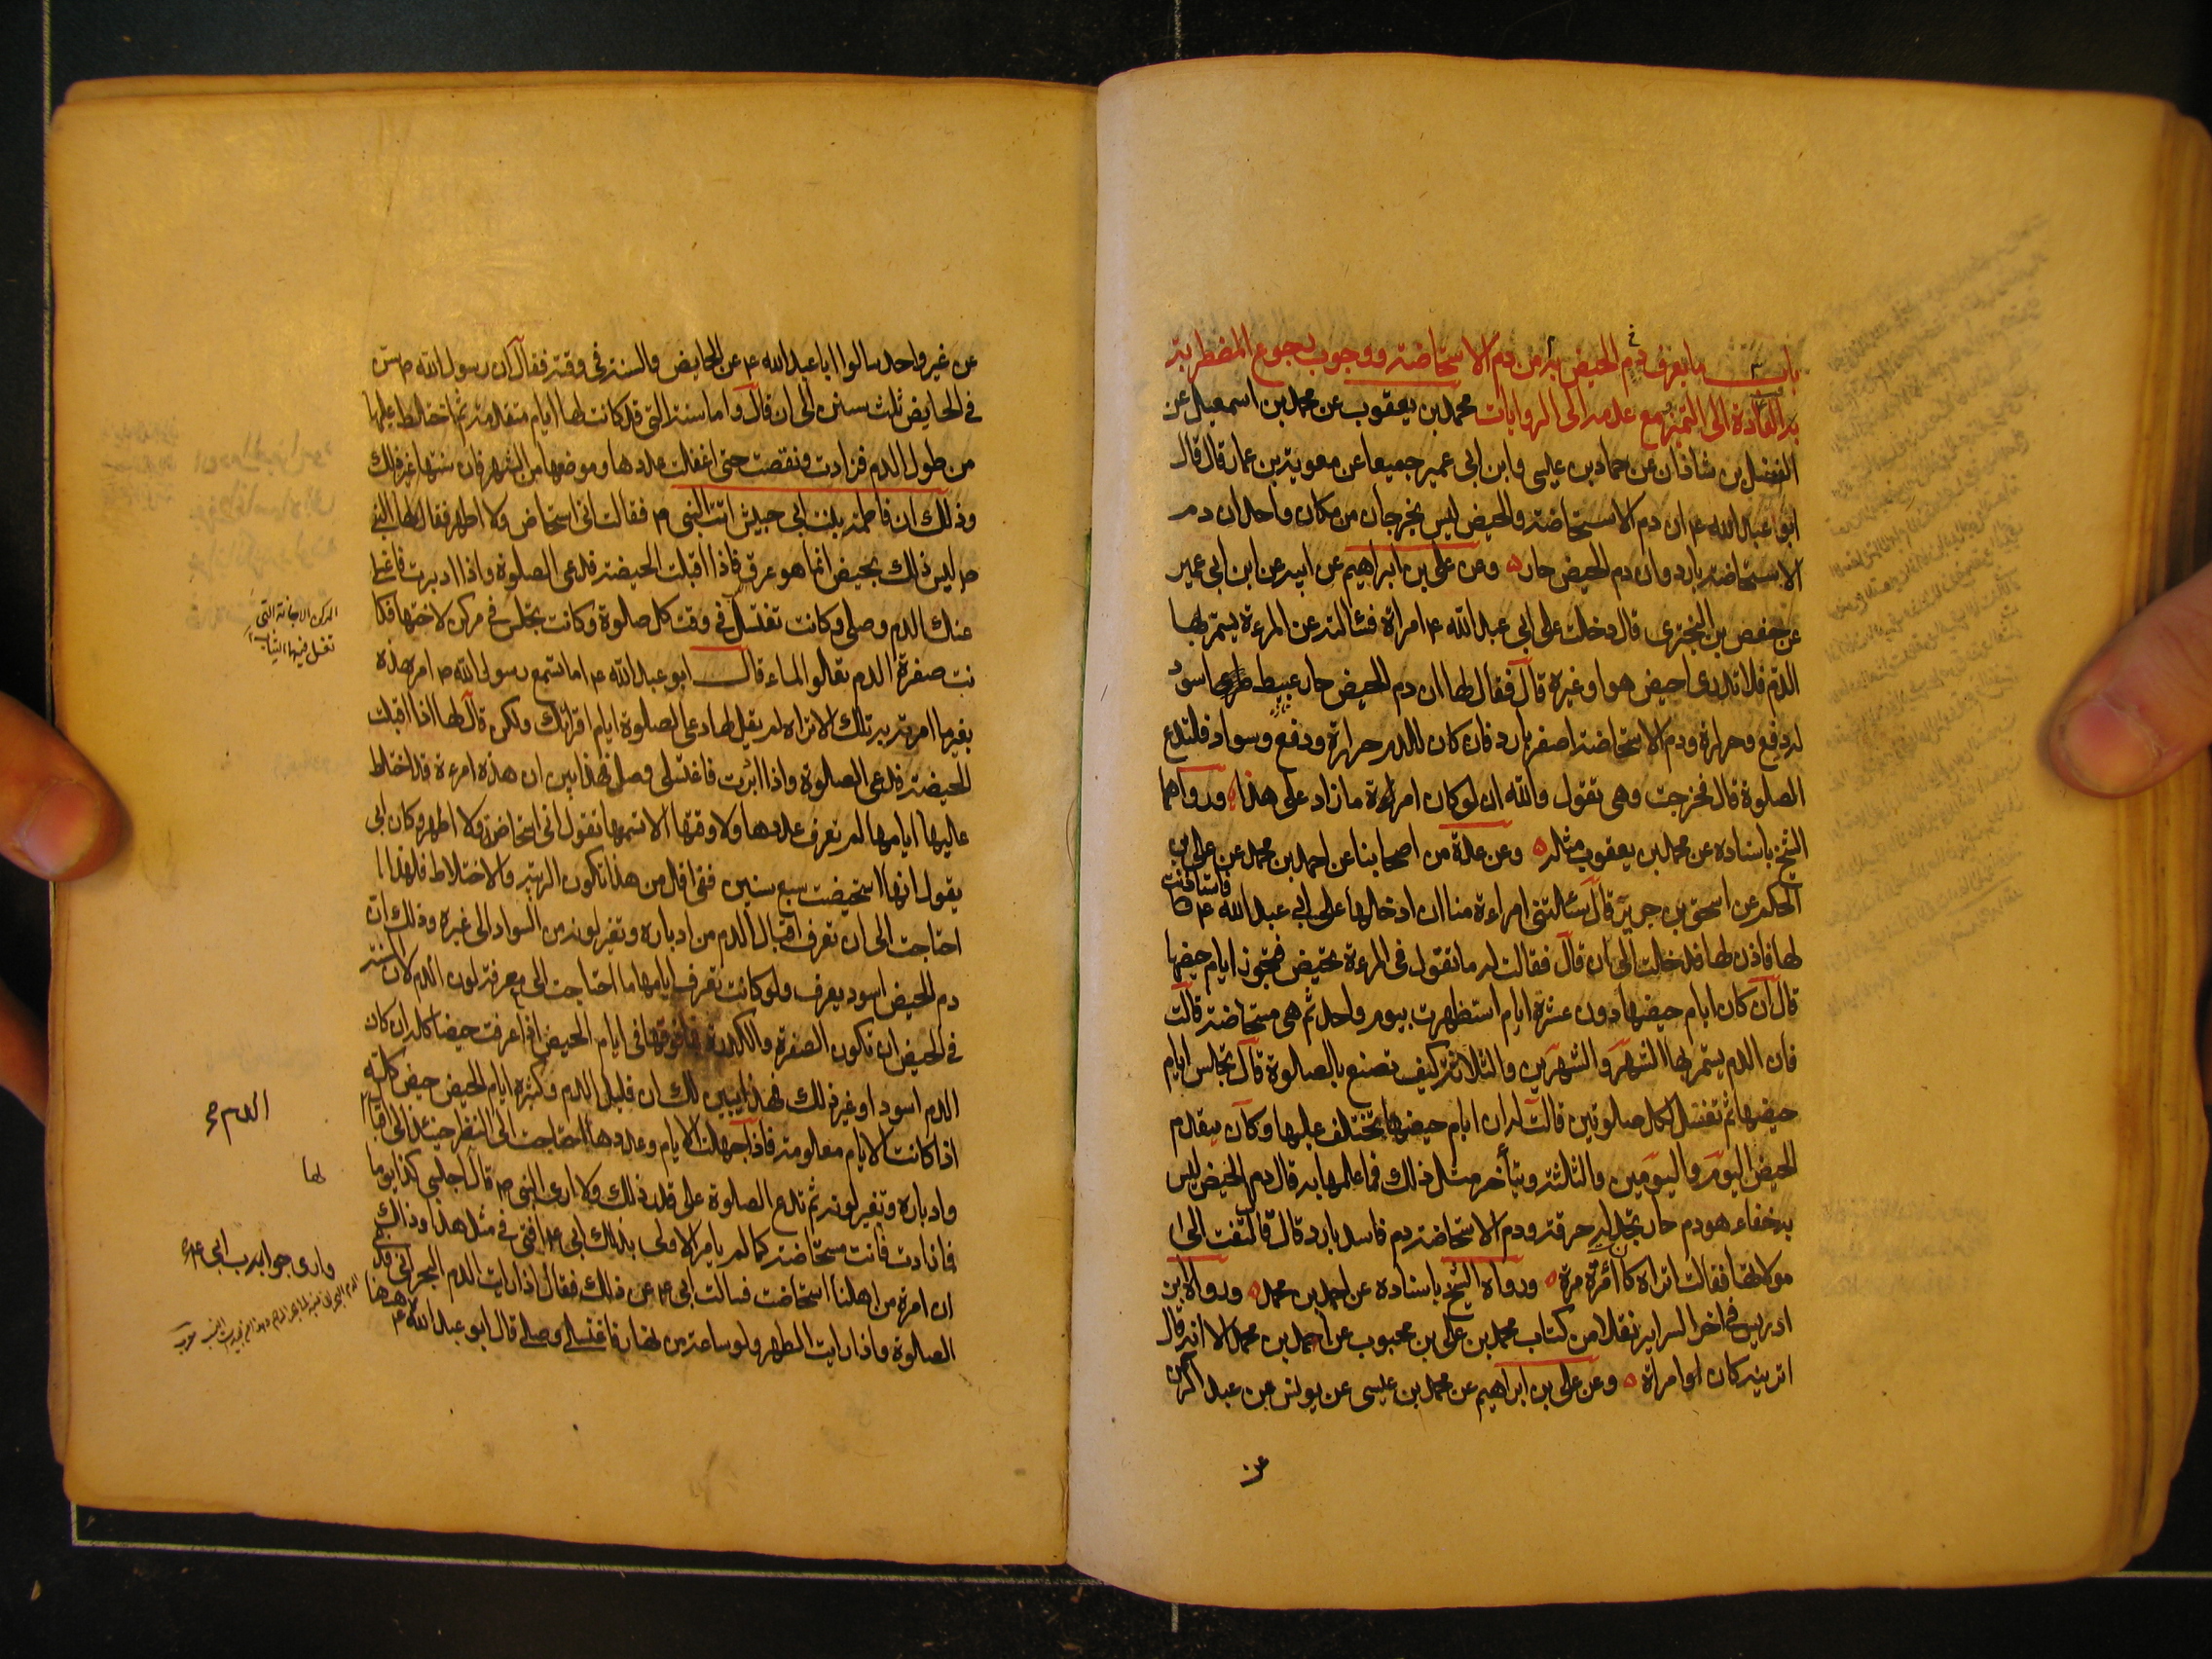 باب ما يعرف به دم الحيض من دم الاستحاضة ووجوب رجوع المضطربة
العادة الى التميز مع عدمه الى الروايات محمد بن يعقوب عن محمد بن اسمعيل عن
الفضل بن شاذان عن حماد بن عيسى وابن ابى عمير جميعا عن معوية بن عمار قال قال
ابو عبد الله ع ان دم الاستحاضة والحيض ليس يخرجان من مكان واحد ان دم
الاستحاضة بارد وان دم الحيض حار وعن على بن ابراهيم عن ابيه عن ابن ابى عمير
عن حفص بن البخترى قال دخلت على ابى عبد الله ع امراة فسئالته عن المرءة يستمر بها
الدم فلا تدرى احيض هو او غيره قال فقال لها ان دم الحيض حار عبيط اسود
له دفع وحرارة ودم الاستحاضة اصفر بارد فان كان للدم حرارة ودفع وسواد فلتدع
الصلوة قال فخرجت وهى تقول والله ان لو كان امراة ما زاد على هذا ورواهما
الشيخ باسناده عن محمد بن يعقوب مثله وعن عدة من اصحابنا عن احمد بن محمد عن على بن
الحكم عن اسحق بن جرير قال سئالتنى امراءة منا ان ادخلها على ابى عبد الله ع فاستاذنت
لها فاذن لها فدخلت الى ان قال فقالت له ما تقول فى المرءة تحيض فتجوز ايام حيضها
قال ان كان ايام حيضها دون عشرة ايام استظهرت بيوم واحد ثم هى مستحاضة قالت
فان الدم يستمر بها الشهر والشهرين والثلاثة كيف تصنع بالصلوة قال تجلس ايام
حيضها ثم تغتسل لكل صلوتين قالت له ان ايام حيضها تختلف عليها وكان يتقدم
الحيض اليوم واليومين والثلثة ويتأخر مثل ذلك فما علمها به قال دم الحيض ليس
به خفاء هو دم حار تجد له حرقة ودم الاستحاضة دم فاسد بارد قال فالتفت الى
مولاتها فقالت اتراه كان امرءة مرة ورواه الشيخ باسناده عن احمد بن محمد ورواه ابن
ادريس فى اخر السراير نقلا من كتاب محمد بن على بن محبوب عن احمد بن محمد الا انه قال
اتريه كان امراة وعن على بن ابراهيم عن محمد بن عيسى عن يونس عن عبد الرحمن
عن
عن غير واحد سالوا ابا عبد الله ع عن الحايض والسنة فى وقته فقال ان رسول الله ص سن
فى الحايض ثلث سنن الى ان قال واما سنة التى قد كانت لها ايام متقدمة ثم اختلط عليها
من طول الدم فزادت ونقصت حتى اغفلت عددها وموضعها من الشهر فان سنتها غير ذلك
وذلك ان فاطمة بنت ابى حبيش اتت النبى ص فقالت انى استحاض ولا اطهر فقال لها النبى
ص ليس ذلك بحيض انما هو عرق فاذا اقبلت الحيضة فدعى الصلوة واذا ادبرت فاغسلى
عنك الدم وصلى وكانت تغتسل فى وقت كل صلوة وكانت تجلس فى مركن لاختها فكا
نت صفرة الدم تعلو الماء قال ابو عبد الله ع اما تسمع رسول الله ص امر هذه
بغير ما امر به تلك الا تراه لم يقل لها دعى الصلوة ايام اقرائك ولكن قال لها اذا اقبلت
الحيضة فدعى الصلوة واذا ادبرت فاغتسلى وصلى فهذا يبين ان هذه امرءة قد اختلط
عليها ايامها لم تعرف عددها ولا وقتها الا تسمعها تقول انى استحاض ولا اطهر وكان ابى
يقول انها استحيضت سبع سنين ففى اقل من هذا تكون الريبة والاختلاط فلهذا
احتاجت الى ان تعرف اقبال الدم من ادباره وتغير لونه من السواد الى غيره وذلك ان
دم الحيض اسود يعرف ولو كانت تعرف ايامها ما احتاجت الى معرفة لون الدم لان السنة
فى الحيض ان تكون الصفرة والكدرة فما فوقها فى ايام الحيض اذا عرفت حيضا كله ان كان
الدم اسود او غير ذلك فهذا يبين لك ان قليل الدم وكثيره ايام الحيض حيض كله
اذا كانت الايام معلومة فاذا جهلت الايام وعددها احتاجت الى النظر حينئذ الى اقبال
وادباره وتغير لونه ثم تدع الصلوة على قدر ذلك ولا ارى النبى ص قال اجلسى كذا يوما
فما زادت فانت مستحاضة كما لم يامر الاولى بذلك ابى ع افتى فى مثل هذا وذاك
ان امرة من اهلنا استحاضت فسالت ابى ع عن ذلك فقال اذا رايت الدم البحرانى فدعى
الصلوة واذا رايت الطهر ولو ساعة من نهار فاغتسلى وصلى قال ابو عبد الله ع
المركن الاجانة التى
تغسل فيها الثياب
الدم
لها